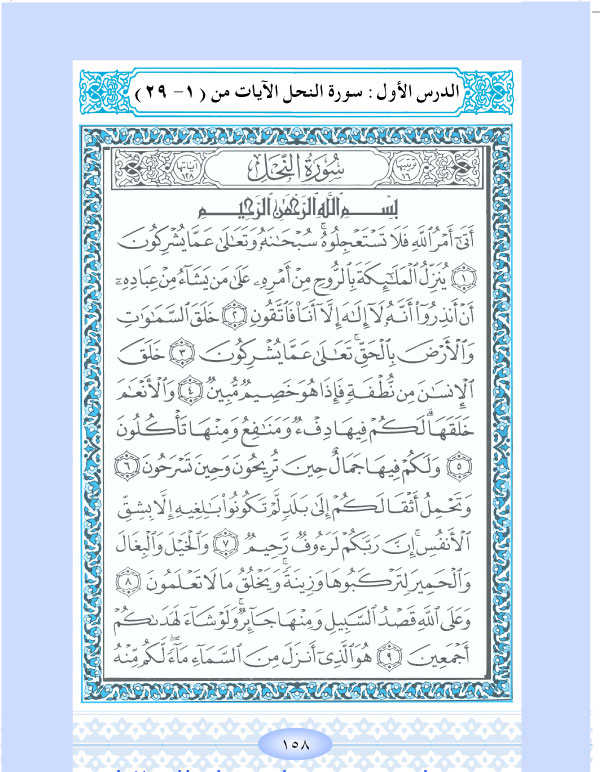 الدرس الأول : سورة النحل الآيات من ( ١ - ٢٩ )
ترتيبها ١٦ سُورَةُ النَّحْلِ آياتها ١٢٨
بِسْمِ ٱللَّهِ ٱلرَّحْمَٰنِ ٱلرَّحِيمِ
أَتَىٰٓ أَمْرُ ٱللَّهِ فَلَا تَسْتَعْجِلُوهُ ۚ سُبْحَٰنَهُۥ وَتَعَٰلَىٰ عَمَّا يُشْرِكُونَ
١ يُنَزِّلُ ٱلْمَلَٰٓئِكَةَ بِٱلرُّوحِ مِنْ أَمْرِهِۦ عَلَىٰ مَن يَشَآءُ مِنْ عِبَادِهِۦٓ
أَنْ أَنذِرُوٓا۟ أَنَّهُۥ لَآ إِلَٰهَ إِلَّآ أَنَا۠ فَٱتَّقُونِ ٢ خَلَقَ ٱلسَّمَٰوَٰتِ
وَٱلْأَرْضَ بِٱلْحَقِّ ۚ تَعَٰلَىٰ عَمَّا يُشْرِكُونَ ٣ خَلَقَ
ٱلْإِنسَٰنَ مِن نُّطْفَةٍ فَإِذَا هُوَ خَصِيمٌ مُّبِينٌ ٤ وَٱلْأَنْعَٰمَ
خَلَقَهَا ۗ لَكُمْ فِيهَا دِفْءٌ وَمَنَٰفِعُ وَمِنْهَا تَأْكُلُونَ
٥ وَلَكُمْ فِيهَا جَمَالٌ حِينَ تُرِيحُونَ وَحِينَ تَسْرَحُونَ ٦
وَتَحْمِلُ أَثْقَالَكُمْ إِلَىٰ بَلَدٍ لَّمْ تَكُونُوا۟ بَٰلِغِيهِ إِلَّا بِشِقِّ
ٱلْأَنفُسِ ۚ إِنَّ رَبَّكُمْ لَرَءُوفٌ رَّحِيمٌ ٧ وَٱلْخَيْلَ وَٱلْبِغَالَ
وَٱلْحَمِيرَ لِتَرْكَبُوهَا وَزِينَةً ۚ وَيَخْلُقُ مَا لَا تَعْلَمُونَ ٨
وَعَلَى ٱللَّهِ قَصْدُ ٱلسَّبِيلِ وَمِنْهَا جَآئِرٌ ۚ وَلَوْ شَآءَ لَهَدَىٰكُمْ
أَجْمَعِينَ ٩ هُوَ ٱلَّذِىٓ أَنزَلَ مِنَ ٱلسَّمَآءِ مَآءً ۖ لَّكُم مِّنْهُ
١٥٨